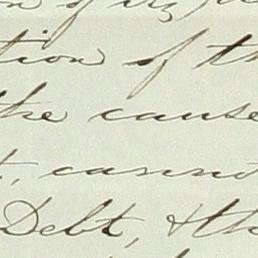 tion of th
the cause
t, cannot
Debt, & the